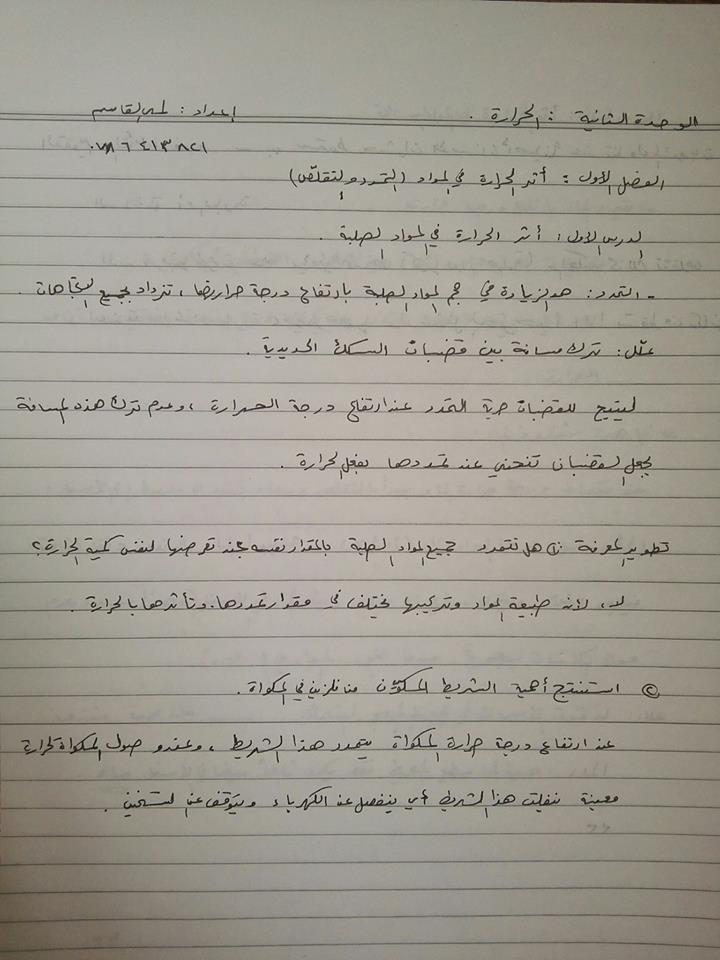 الوحدة الثانية : الحرارة . إعداد : لمى القاسم
٠٧٨٦٤١٣٨٢١
الفصل الأول : أثر الحرارة في المواد (التمدد والتقلّص)
الدرس الأول : أثر الحرارة في المواد الصلبة .
- التمدد : هو الزيادة في حجم المواد الصلبة بارتفاع درجة حرارتها ، تزداد بجميع الاتجاهات .
علّل : ترك مسافة بين قضبان السكك الحديدية .
ليتيح للقضبان حرية التمدد عند ارتفاع درجة الحرارة ، وعدم ترك هذه المسافة
يجعل القضبان تنحني عند تمددها بفعل الحرارة .
تطوير المعرفة ١) هل تتمدد جميع المواد الصلبة بالمقدار نفسه عند تعرضها لنفس كمية الحرارة ؟
لا ، لأنه طبيعة المواد وتركيبها يختلف في مقدار تمددها وتأثرها بالحرارة .
٢) استنتج أهمية الشريط المكوّن من فلزين في المكواة .
عند ارتفاع درجة حرارة المكواة يتمدد هذا الشريط ، وعند وصول المكواة لحرارة
معينة هذا الشريط أي ينفصل عن الكهرباء ويتوقف عن التسخين .